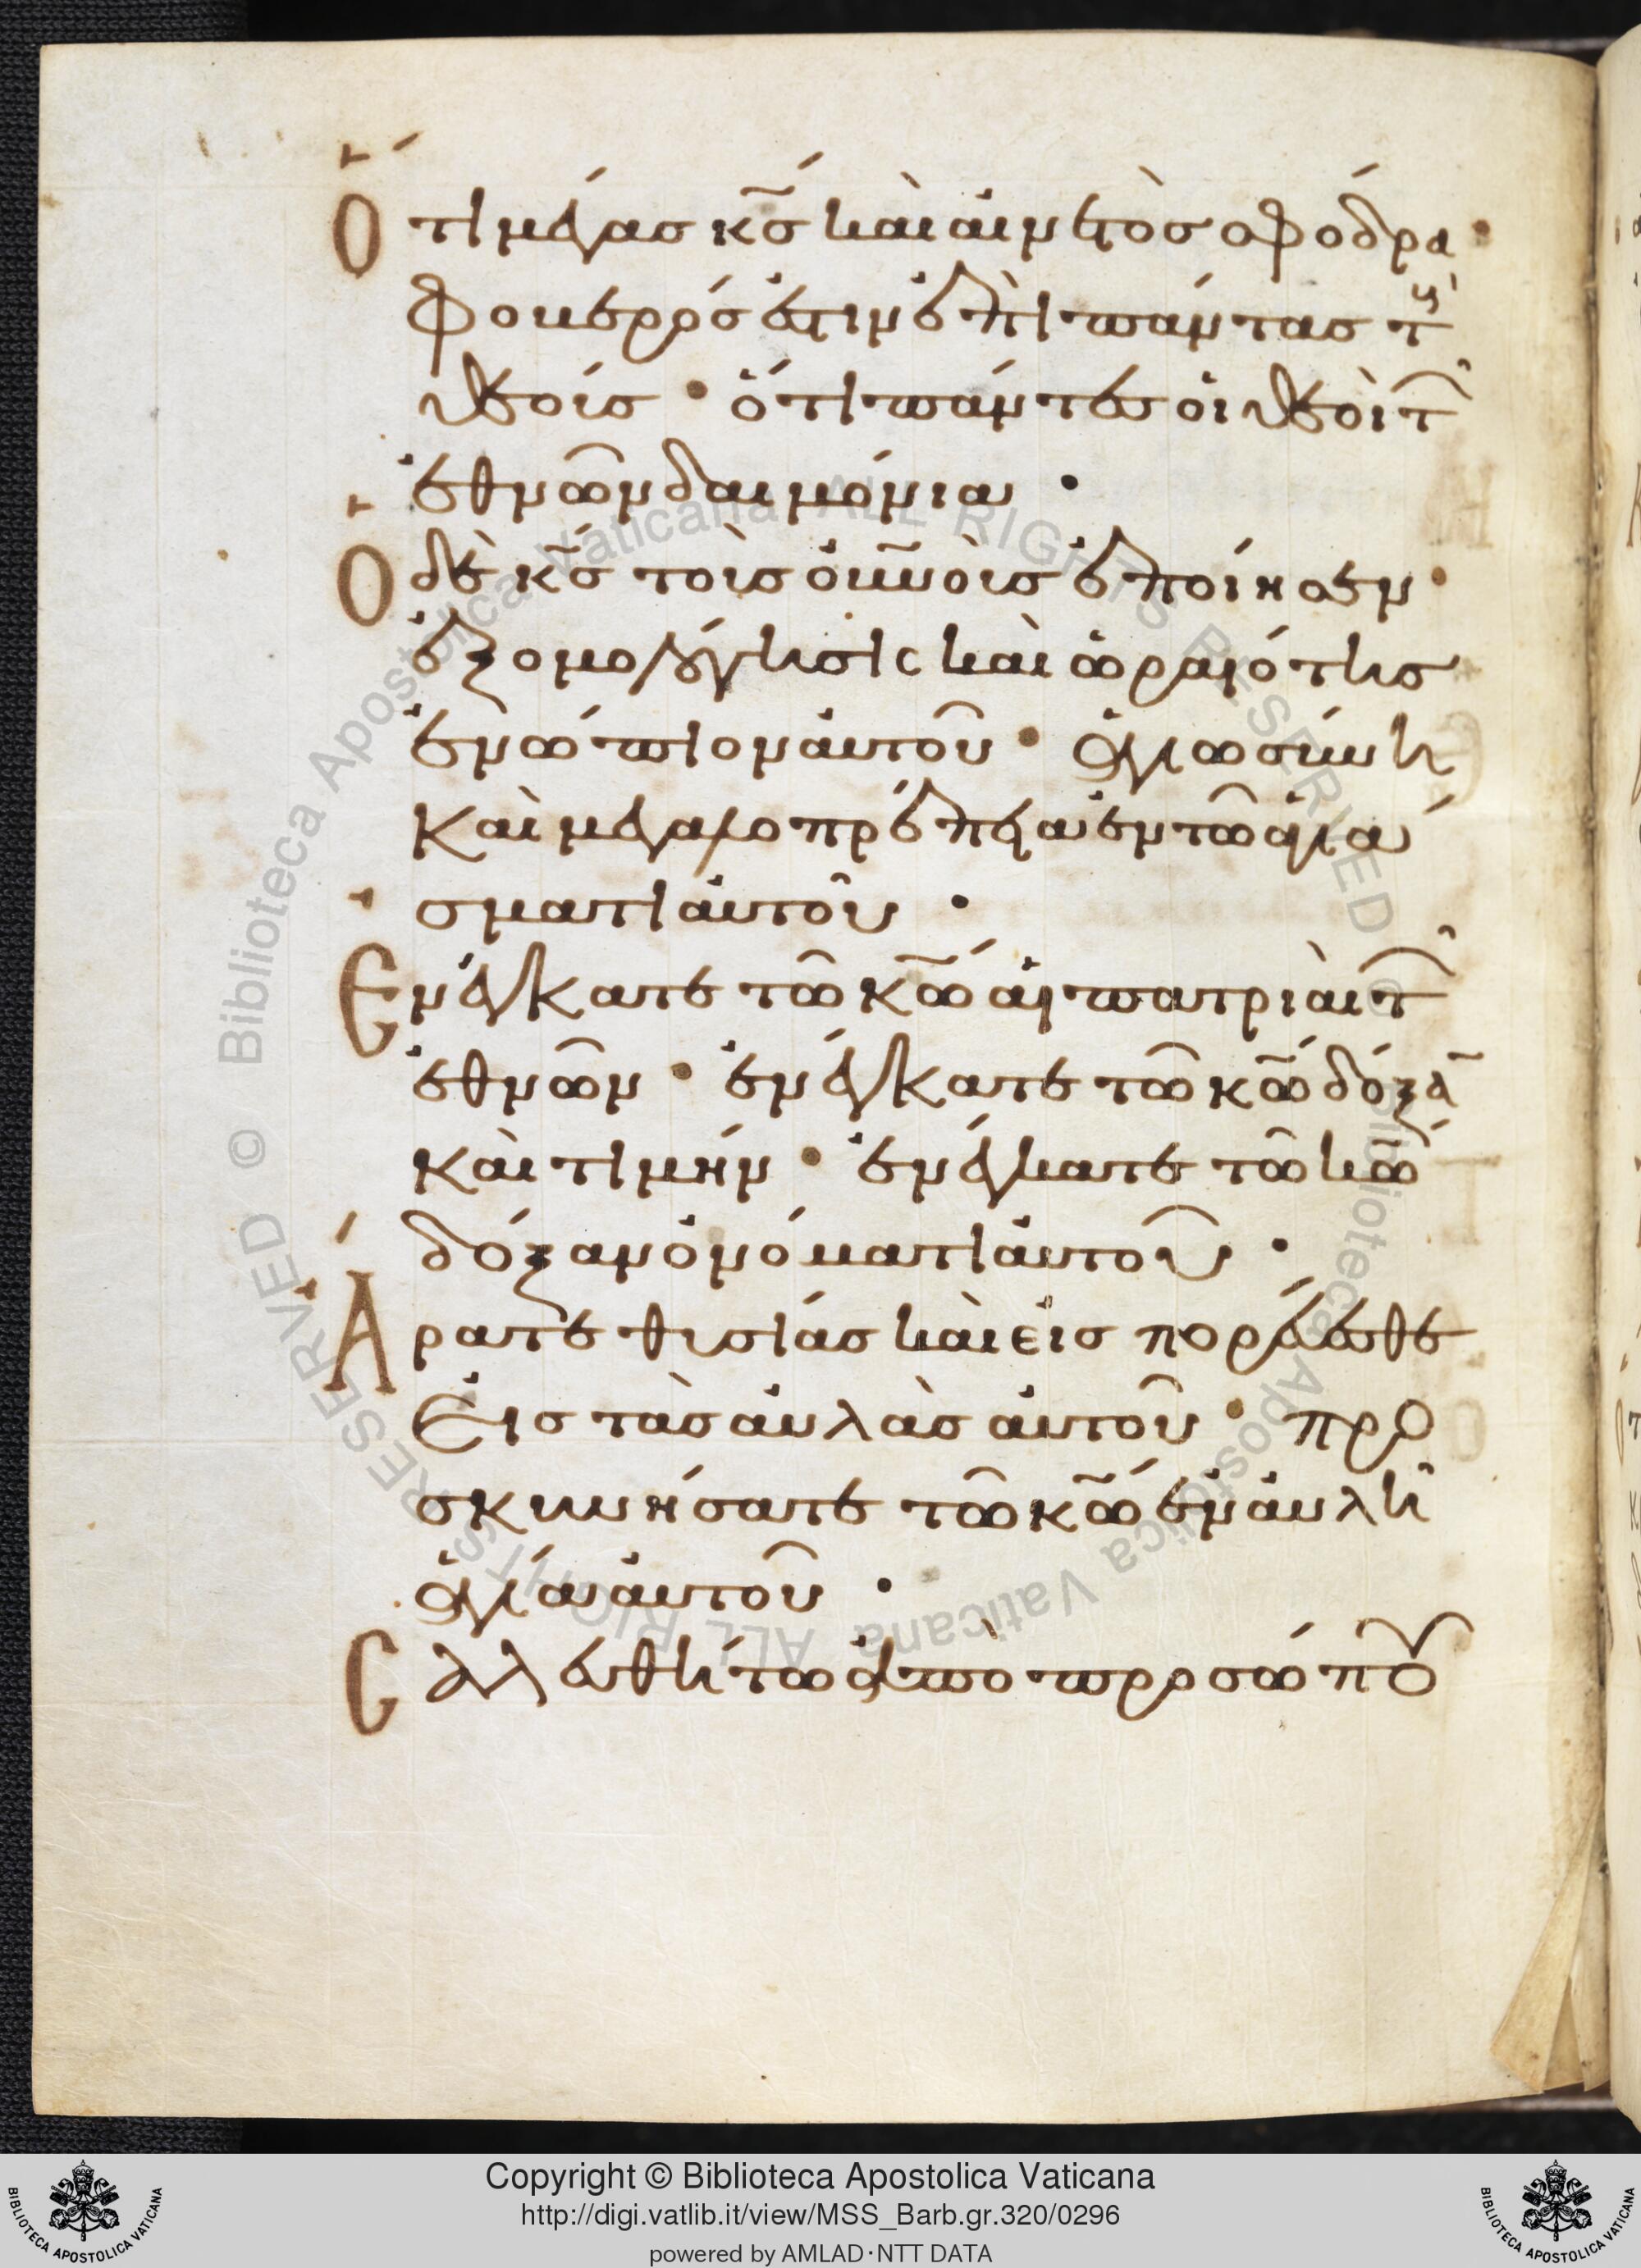 Ὅτι μέγας κ̅ς̅ καὶ αἰνετὸς σφόδρα·
Φοβερός ἐστιν ἐπὶ πάντας τοὺς
θεούς· ὅτι πάντες οἱ θεοὶ τῶν
ἐθνῶν δαιμόνια·
Ὁ δὲ κ̅ς̅ τοὺς οὐ̅νοὺς ἐποίησεν·
ἐξομολόγησις καὶ ὡραιότης
ἐνώπιον αὐτοῦ· ἁγιωσύνη
Καὶ μεγαλοπρέπεια ἐν τῶ ἁγιά
σματι αὐτοῦ·
Ἐνέγκατε τῶ κ̅ω̅ αἱ πατριαὶ τῶν
ἐθνῶν· ἐνέγκατε τῶ κ̅ω̅ δόξα̅
καὶ τιμήν· ἐνέγκατε τῶ κ̅ω̅
δόξαν ὀνόματι αὐτοῦ·
Ἄρατε θυσίας καὶ εἰσπορεύεσθε
Εἰς τὰς αὐλὰς αὐτοῦ· προ
σκυνήσατε τῶ κ̅ω̅ ἐν αὐλῆ
ἁγία αὐτοῦ·
Σαλευθήτω ἀπὸ προσώπου
Copyright © Biblioteca Apostolica Vaticana
http://digi.vatlib.it/view/MSS_Barb.gr.320/0296
powered by AMLAD·NTT DATA
BIBLIOTECA APOSTOLICA VATICANA
BIBLIOTECA APOSTOLICA VATICANA
© Biblioteca Apostolica Vaticana ALL RIGHTS RESERVED © Biblioteca Apostolica Vaticana ALL RIGHTS RESERVED